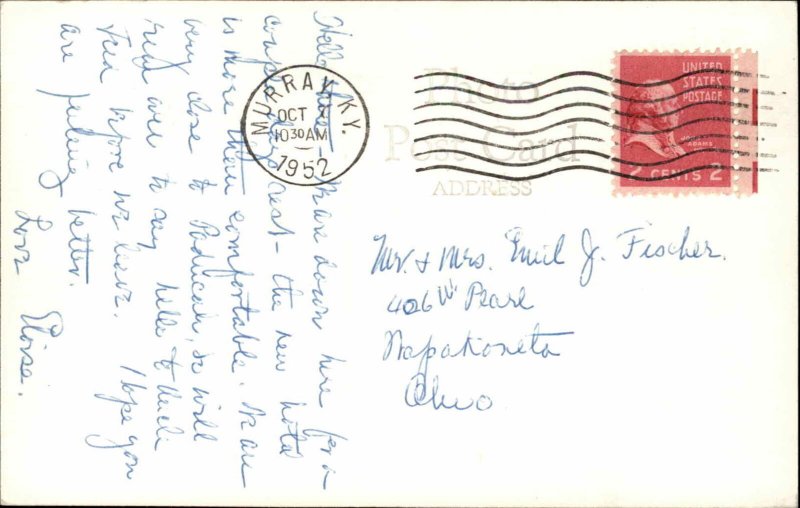 Hello there - We are down here for a
couple days rest - the new hotel
is more than comfortable. We are
very close to Paducah, so will
run over to say hello to Uncle
Fred before we leave. I hope you
are feeling better.
Love Eloise.
MURRAY, KY.
OCT
1030 AM
1952
Photo
Post Card
ADDRESS
UNITED
STATES
POSTAGE
JOHN
ADAMS
2 CENTS 2
Mr. & Mrs. Emil J. Fischer.
406 W. Pearl
Wapakoneta
Ohio